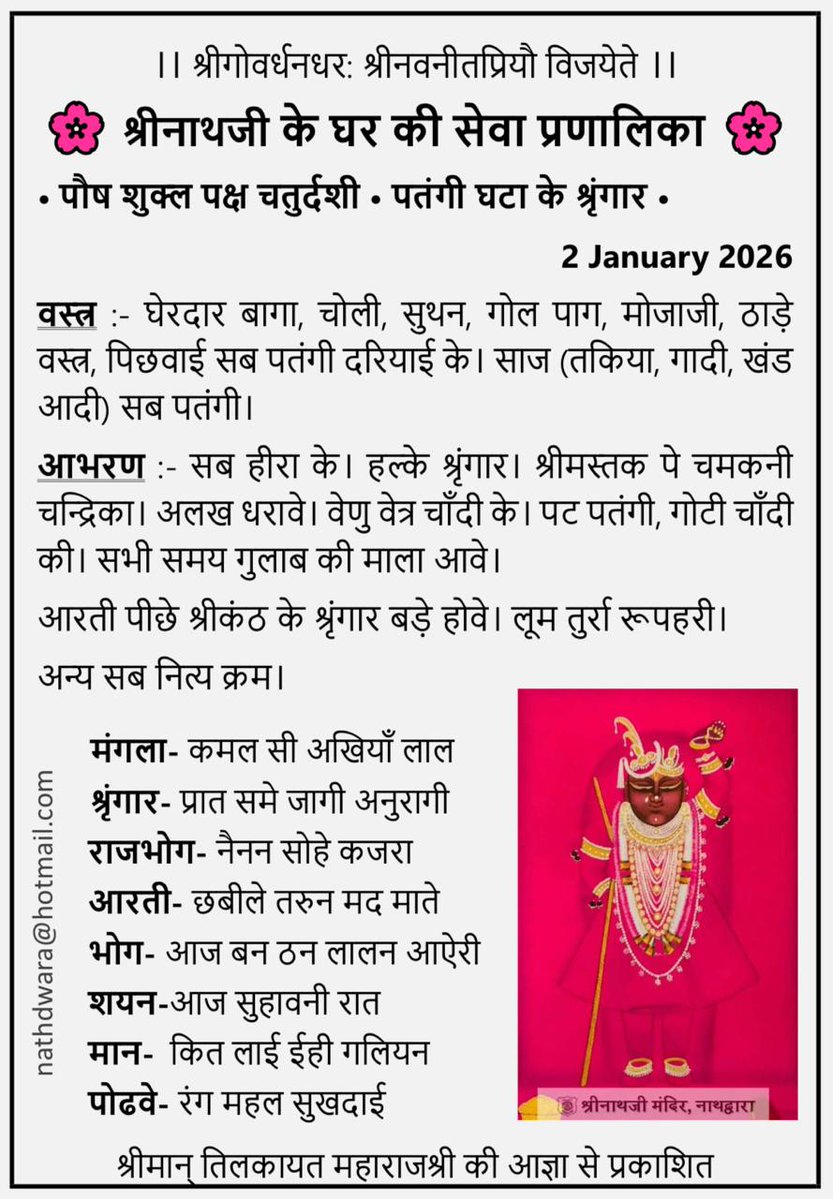 ।। श्रीगोवर्धनधर: श्रीनवनीतप्रियौ विजयेते ।।
श्रीनाथजी के घर की सेवा प्रणालिका
• पौष शुक्ल पक्ष चतुर्दशी • पतंगी घटा के श्रृंगार •
2 January 2026
वस्त्र :- घेरदार बागा, चोली, सुथन, गोल पाग, मोजाजी, ठाड़े
वस्त्र, पिछवाई सब पतंगी दरियाई के। साज (तकिया, गादी, खंड
आदी) सब पतंगी।
आभरण :- सब हीरा के। हल्के श्रृंगार। श्रीमस्तक पे चमकनी
चन्द्रिका। अलख धरावे। वेणु वेत्र चाँदी के। पट पतंगी, गोटी चाँदी
की। सभी समय गुलाब की माला आवे।
आरती पीछे श्रीकंठ के श्रृंगार बड़े होवे। लूम तुर्रा रूपहरी।
अन्य सब नित्य क्रम।
मंगला- कमल सी अखियाँ लाल
श्रृंगार- प्रात समे जागी अनुरागी
राजभोग- नैनन सोहे कजरा
आरती- छबीले तरुन मद माते
भोग- आज बन ठन लालन आऐरी
शयन-आज सुहावनी रात
मान- कित लाई ईही गलियन
पोढवे- रंग महल सुखदाई
nathdwara@hotmail.com
श्रीनाथजी मंदिर, नाथद्वारा
श्रीमान् तिलकायत महाराजश्री की आज्ञा से प्रकाशित